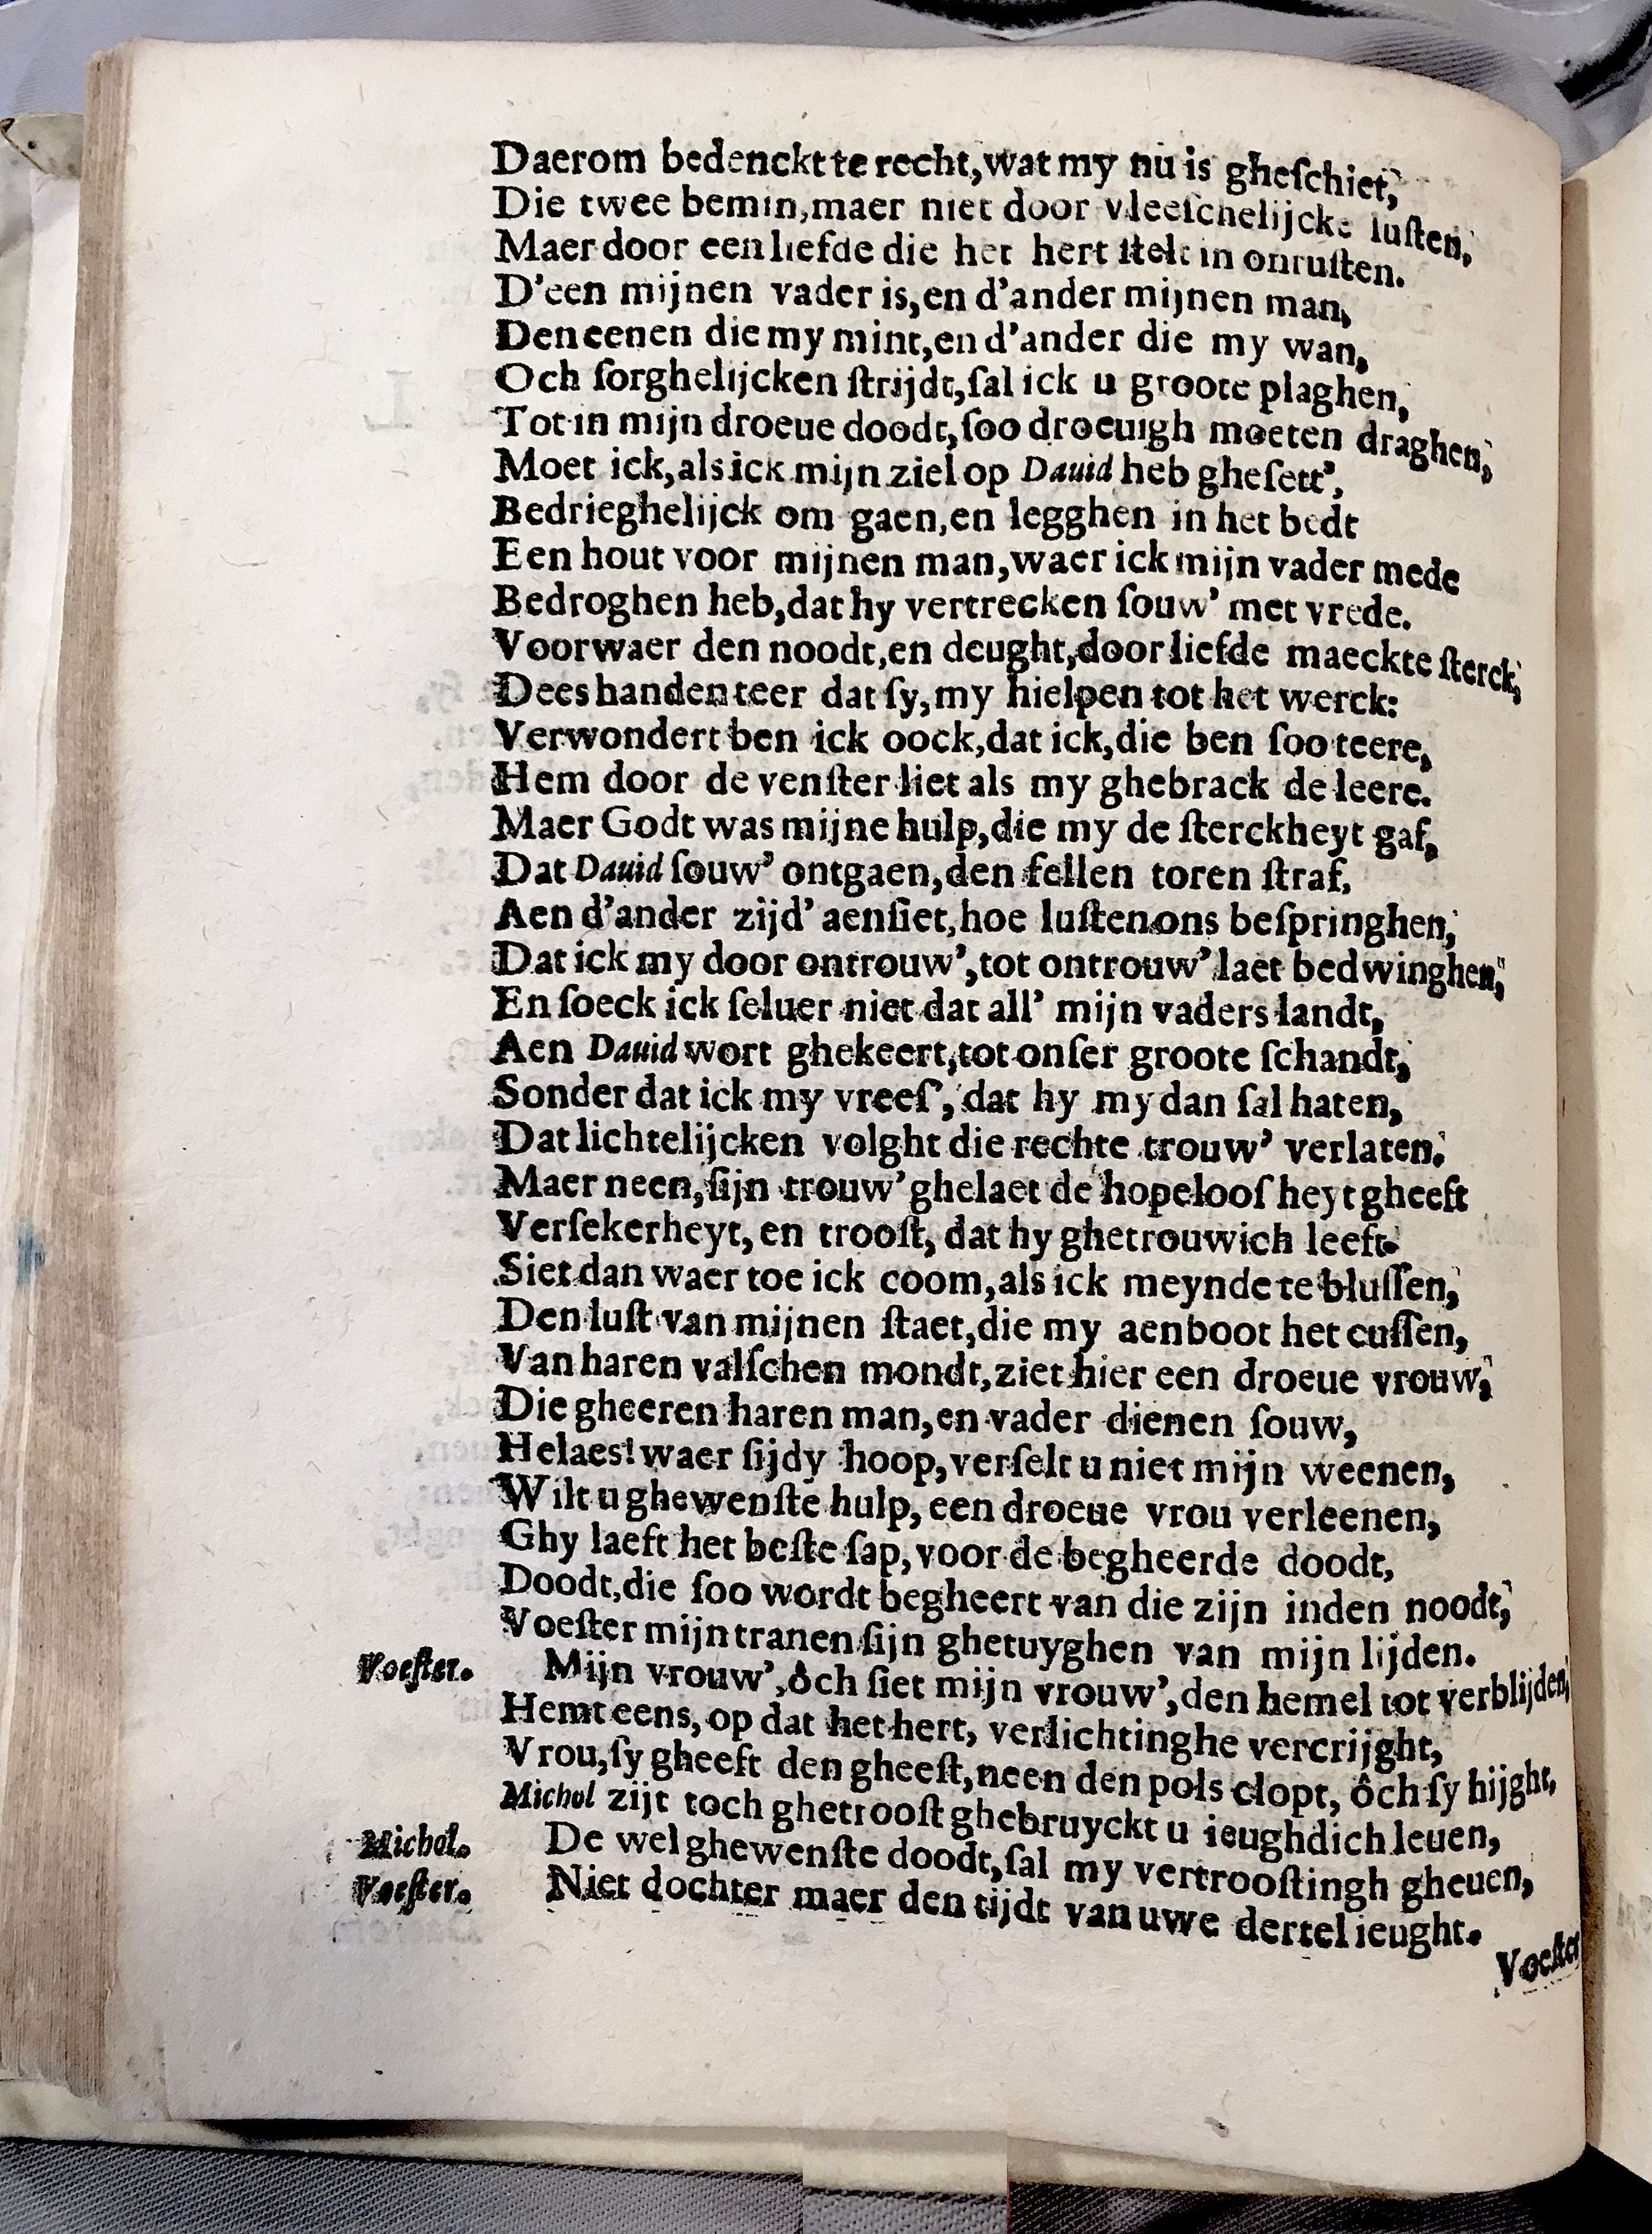 Daerom bedenckt te recht, wat my nu is gheſchiet,
Die twee bemin, maer niet door vleeſchelijcke luſten,
Maer door een liefde die het hert ſtelt in onruſten.
D'een mijnen vader is, en d'ander mijnen man,
Den eenen die my mint, en d'ander die my wan,
Och ſorghelijcken ſtrijdt, ſal ick u groote plaghen,
Tot in mijn droeue doodt, ſoo droeuigh moeten draghen,
Moet ick, als ick mijn ziel op Dauid heb gheſett',
Bedrieghelijck om gaen, en legghen in het bedt
Een hout voor mijnen man, waer ick mijn vader mede
Bedroghen heb, dat hy vertrecken ſouw' met vrede.
Voorwaer den noodt, en deught, door liefde maeckte ſterck,
Dees handen teer dat ſy, my hielpen tot het werck:
Verwondert ben ick oock, dat ick, die ben ſoo teere,
Hem door de venſter liet als my ghebrack de leere.
Maer Godt was mijne hulp, die my de ſterckheyt gaf,
Dat Dauid ſouw' ontgaen, den fellen toren ſtraf,
Aen d'ander zijd' aenſiet, hoe luſten ons beſpringhen,
Dat ick my door ontrouw', tot ontrouw' laet bedwinghen,
En ſoeck ick ſeluer niet dat all' mijn vaders landt,
Aen Dauid wort ghekeert, tot onſer groote ſchandt,
Sonder dat ick my vreeſ', dat hy my dan ſal haten,
Dat lichtelijcken volght die rechte trouw' verlaten.
Maer neen, ſijn trouw' ghelaet de hopelooſheyt gheeft
Verſekerheyt, en trooſt, dat hy ghetrouwich leeft.
Siet dan waer toe ick coom, als ick meynde te bluſſen,
Den luſt van mijnen ſtaet, die my aenboot het cuſſen,
Van haren valſchen mondt, ziet hier een droeue vrouw,
Die gheeren haren man, en vader dienen ſouw,
Helaes! waer ſijdy hoop, verſelt u niet mijn weenen,
Wilt u ghewenſte hulp, een droeue vrou verleenen,
Ghy laeft het beſte ſap, voor de begheerde doodt,
Doodt, die ſoo wordt begheert van die zijn inden noodt,
Voeſter mijn tranen ſijn ghetuyghen van mijn lijden.
Voeſter. Mijn vrouw', ôch ſiet mijn vrouw', den hemel tot verblijden,
Hemt eens, op dat het hert, verlichtinghe vercrijght,
Vrou, ſy gheeft den gheeſt, neen den pols clopt, ôch ſy hijght,
Michol zijt toch ghetrooſt ghebruyckt u ieughdich leuen,
Michol. De wel ghewenſte doodt, ſal my vertrooſtingh gheuen,
Voeſter. Niet dochter maer den tijdt van uwe dertel ieught.
Voeſter